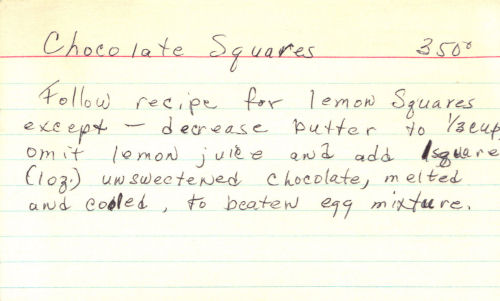 Chocolate Squares 350°
Follow recipe for lemon Squares
except - decrease butter to 1/3 cup,
omit lemon juice and add 1 square
(1 oz.) unsweetened chocolate, melted
and cooled, to beaten egg mixture.